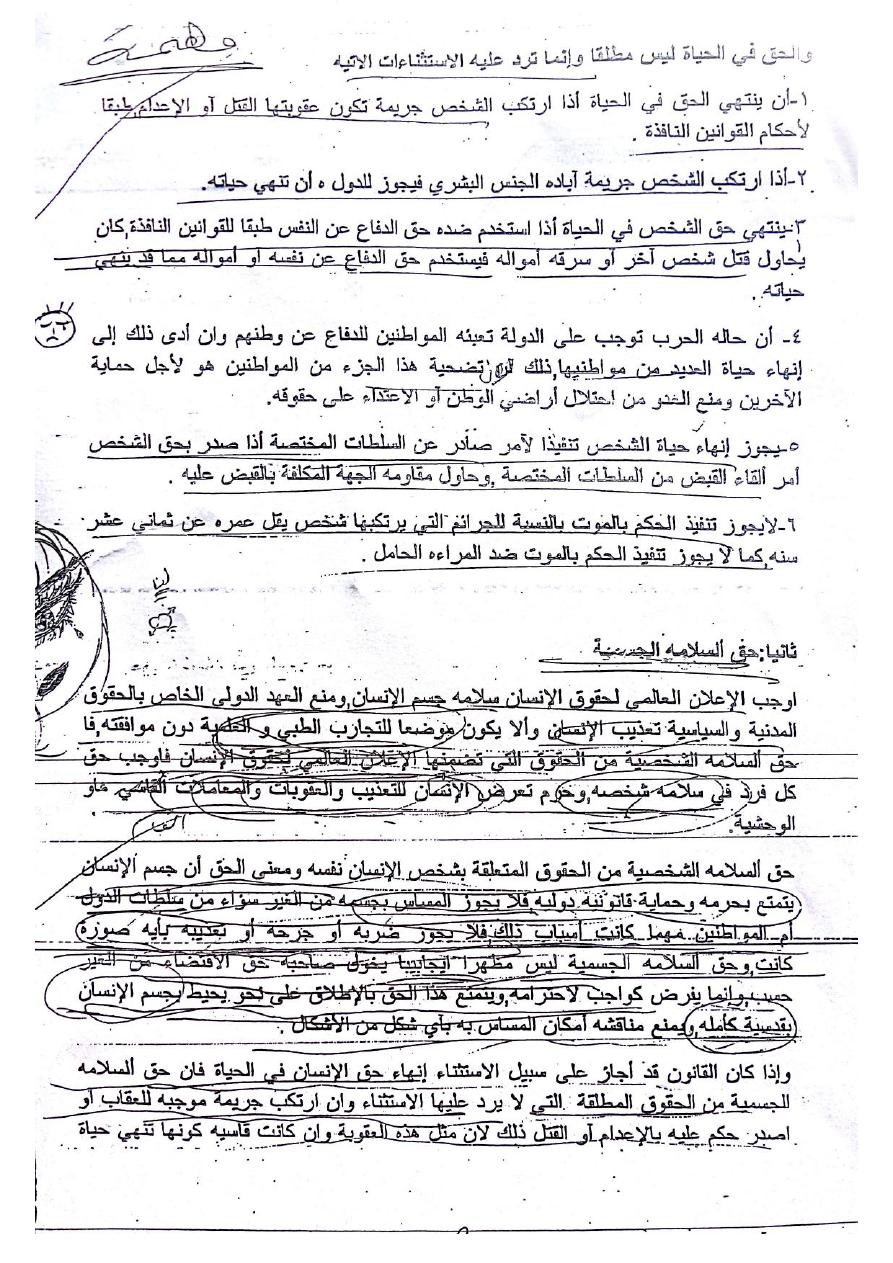 وهمية
والحق في الحياة ليس مطلقا وإنما ترد عليه الاستثناءات الاتيه
١-أن ينتهي الحق في الحياة أذا ارتكب الشخص جريمة تكون عقوبتها القتل آو الإعدام,طبقا
لأحكام القوانين النافذة .
٢-أذا ارتكب الشخص جريمة آباده الجنس البشري فيجوز للدول ه أن تنهي حياته.
٣-ينتهي حق الشخص في الحياة أذا استخدم ضده حق الدفاع عن النفس طبقا للقوانين النافذة,كان
يحاول قتل شخص آخر أو سرقه أمواله فيستخدم حق الدفاع عن نفسه او أمواله مما قد ينهي
حياته .
٤- أن حاله الحرب توجب على الدولة تعبئه المواطنين للدفاع عن وطنهم وان أدى ذلك إلى
إنهاء حياة العديد من مواطنيها,ذلك لان تضحية هذا الجزء من المواطنين هو لأجل حماية
الآخرين ومنع العدو من احتلال أراضي الوطن أو الاعتداء على حقوقه.
٥-يجوز إنهاء حياة الشخص تنفيذا لأمر صادر عن السلطات المختصة أذا صدر بحق الشخص
أمر ألقاء القبض من السلطات المختصة ,وحاول مقاومه الجهة المكلفة بالقبض عليه .
٦-لايجوز تنفيذ الحكم بالموت بالنسبة للجرائم التي يرتكبها شخص يقل عمره عن ثماني عشر
سنه,كما لا يجوز تنفيذ الحكم بالموت ضد المراءه الحامل .
ثانيا:حق ألسلامه الجسمية
اوجب الإعلان العالمي لحقوق الإنسان سلامه جسم الإنسان,ومنع العهد الدولي الخاص بالحقوق
المدنية والسياسية تعذيب الإنسان وألا يكون موضعا للتجارب الطبي و العلمية دون موافقته,فا
حق ألسلامه الشخصية من الحقوق التي تضمنها الإعلان العالمي لحقوق الإنسان فاوجب حق
كل فرد في سلامه شخصه,وحرم تعرض الإنسان للتعذيب والعقوبات والمعاملات القاسي هاو
الوحشية.
حق ألسلامه الشخصية من الحقوق المتعلقة بشخص الإنسان نفسه ومعنى الحق أن جسم الإنسان
يتمتع بحرمه وحماية قانونيه دوليه فلا يجوز المساس بجسمه من الغير سؤاء من سلطات الدول
أم المواطنين مهما كانت أسباب ذلك,فلا يجوز ضربه أو جرحه أو تعذيبه بأيه صورة
كانت,وحق ألسلامه الجسمية ليس مظهرا ايجابيبا يخول صاحبه حق الاقتضاء من الغير
حسب,وإنما يفرض كواجب لاحترامه,ويتمتع هذا الحق بالإطلاق على نحو يحيط بجسم الإنسان
بقدسية كامله,ويمنع مناقشه أمكان المساس به بأي شكل من الأشكال .
وإذا كان القانون قد أجاز على سبيل الاستثناء إنهاء حق الإنسان في الحياة فان حق ألسلامه
الجسمية من الحقوق المطلقة التي لا يرد عليها الاستثناء وان ارتكب جريمة موجبه للعقاب أو
اصدر حكم عليه بالإعدام أو القتل ذلك لان مثل هذه العقوبة وان كانت قاسيه كونها تنهي حياة